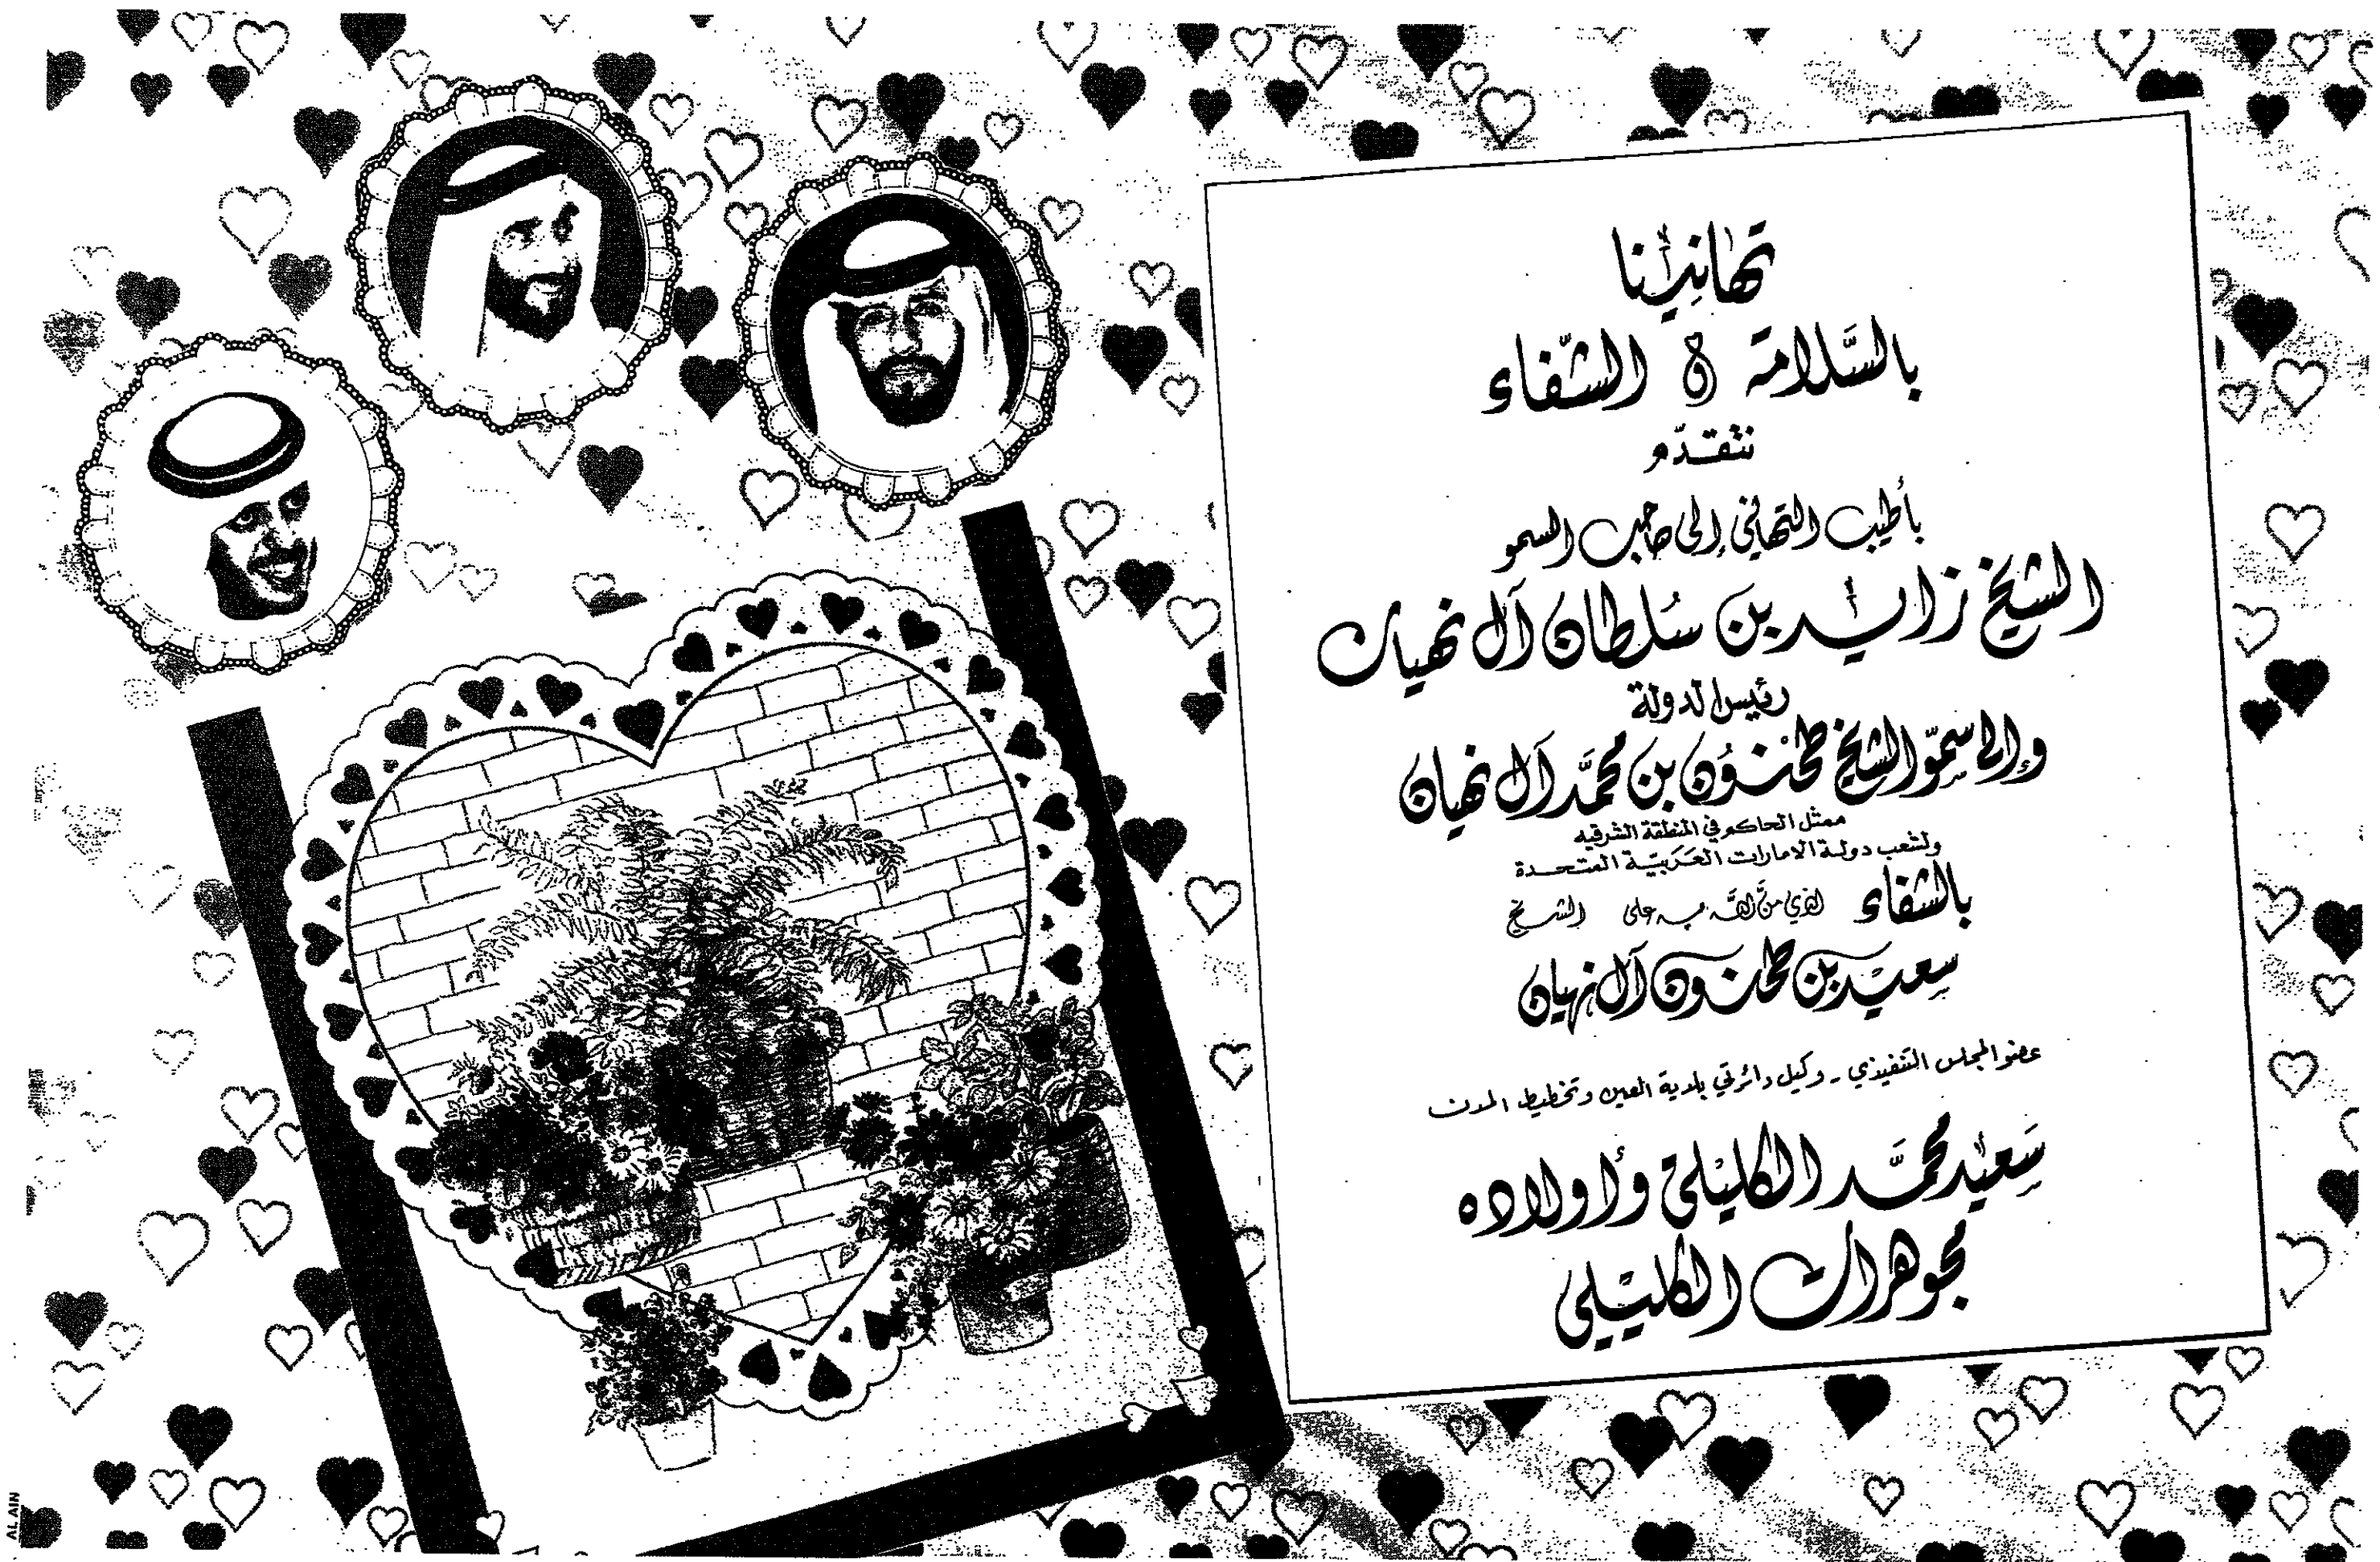 تهانينا
بالسَّلامة و الشّفاء
نتقدّم
بأطيب التهاني إلى صاحب السمو
الشيخ زايد بن سُلطان آل نهيان
رئيس الدولة
وإلى سموّ الشيخ طحنوُن بن محمَّد آل نهيان
ممثل الحاكم في المنطقة الشرقيه
ولشعب دولة الامارات العَرَبيَّة المتحدة
بالشفاء الذي منَّ اللَّه به على الشيخ
سعيد بن طحنون آل نهيان
عضو المجلس التنفيذي - وكيل دائرتي بلدية العين وتخطيط المدن
سَعيد محمَّد الكليلي وأولاده
مجوهرات الكليلي
AL AIN